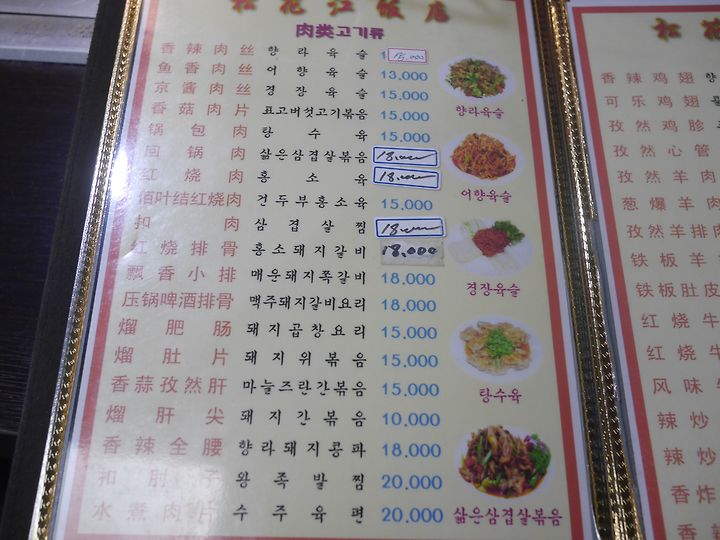 松花江饭店
肉类고기류
香辣肉丝 향라육슬 18,000
鱼香肉丝 어향육슬 13,000
京酱肉丝 경장육슬 15,000
香菇肉片 표고버섯고기볶음 15,000
锅包肉 탕수육 15,000
回锅肉 삶은삼겹살볶음 18,000
红烧肉 홍소육 18,000
佰叶结红烧肉 건두부홍소육 15,000
扣肉 삼겹살찜 18,000
红烧排骨 홍소돼지갈비 18,000
飘香小排 매운돼지쪽갈비 18,000
压锅啤酒排骨 맥주돼지갈비요리 18,000
熘肥肠 돼지곱창요리 15,000
熘肚片 돼지위볶음 15,000
香蒜孜然肝 마늘즈란간볶음 15,000
熘肝尖 돼지간볶음 10,000
香辣全腰 향라돼지콩파 18,000
扣肘子 왕족발찜 20,000
水煮肉片 수주육편 20,000
향라육슬
어향육슬
경장육슬
탕수육
삶은삼겹살볶음
松花
香辣鸡翅 향
可乐鸡翅
孜然鸡胗
孜然心管
孜然羊肉
葱爆羊肉
孜然羊排
铁板羊
铁板肚皮
红烧牛
红烧牛
风味
辣炒
辣炒
香炸